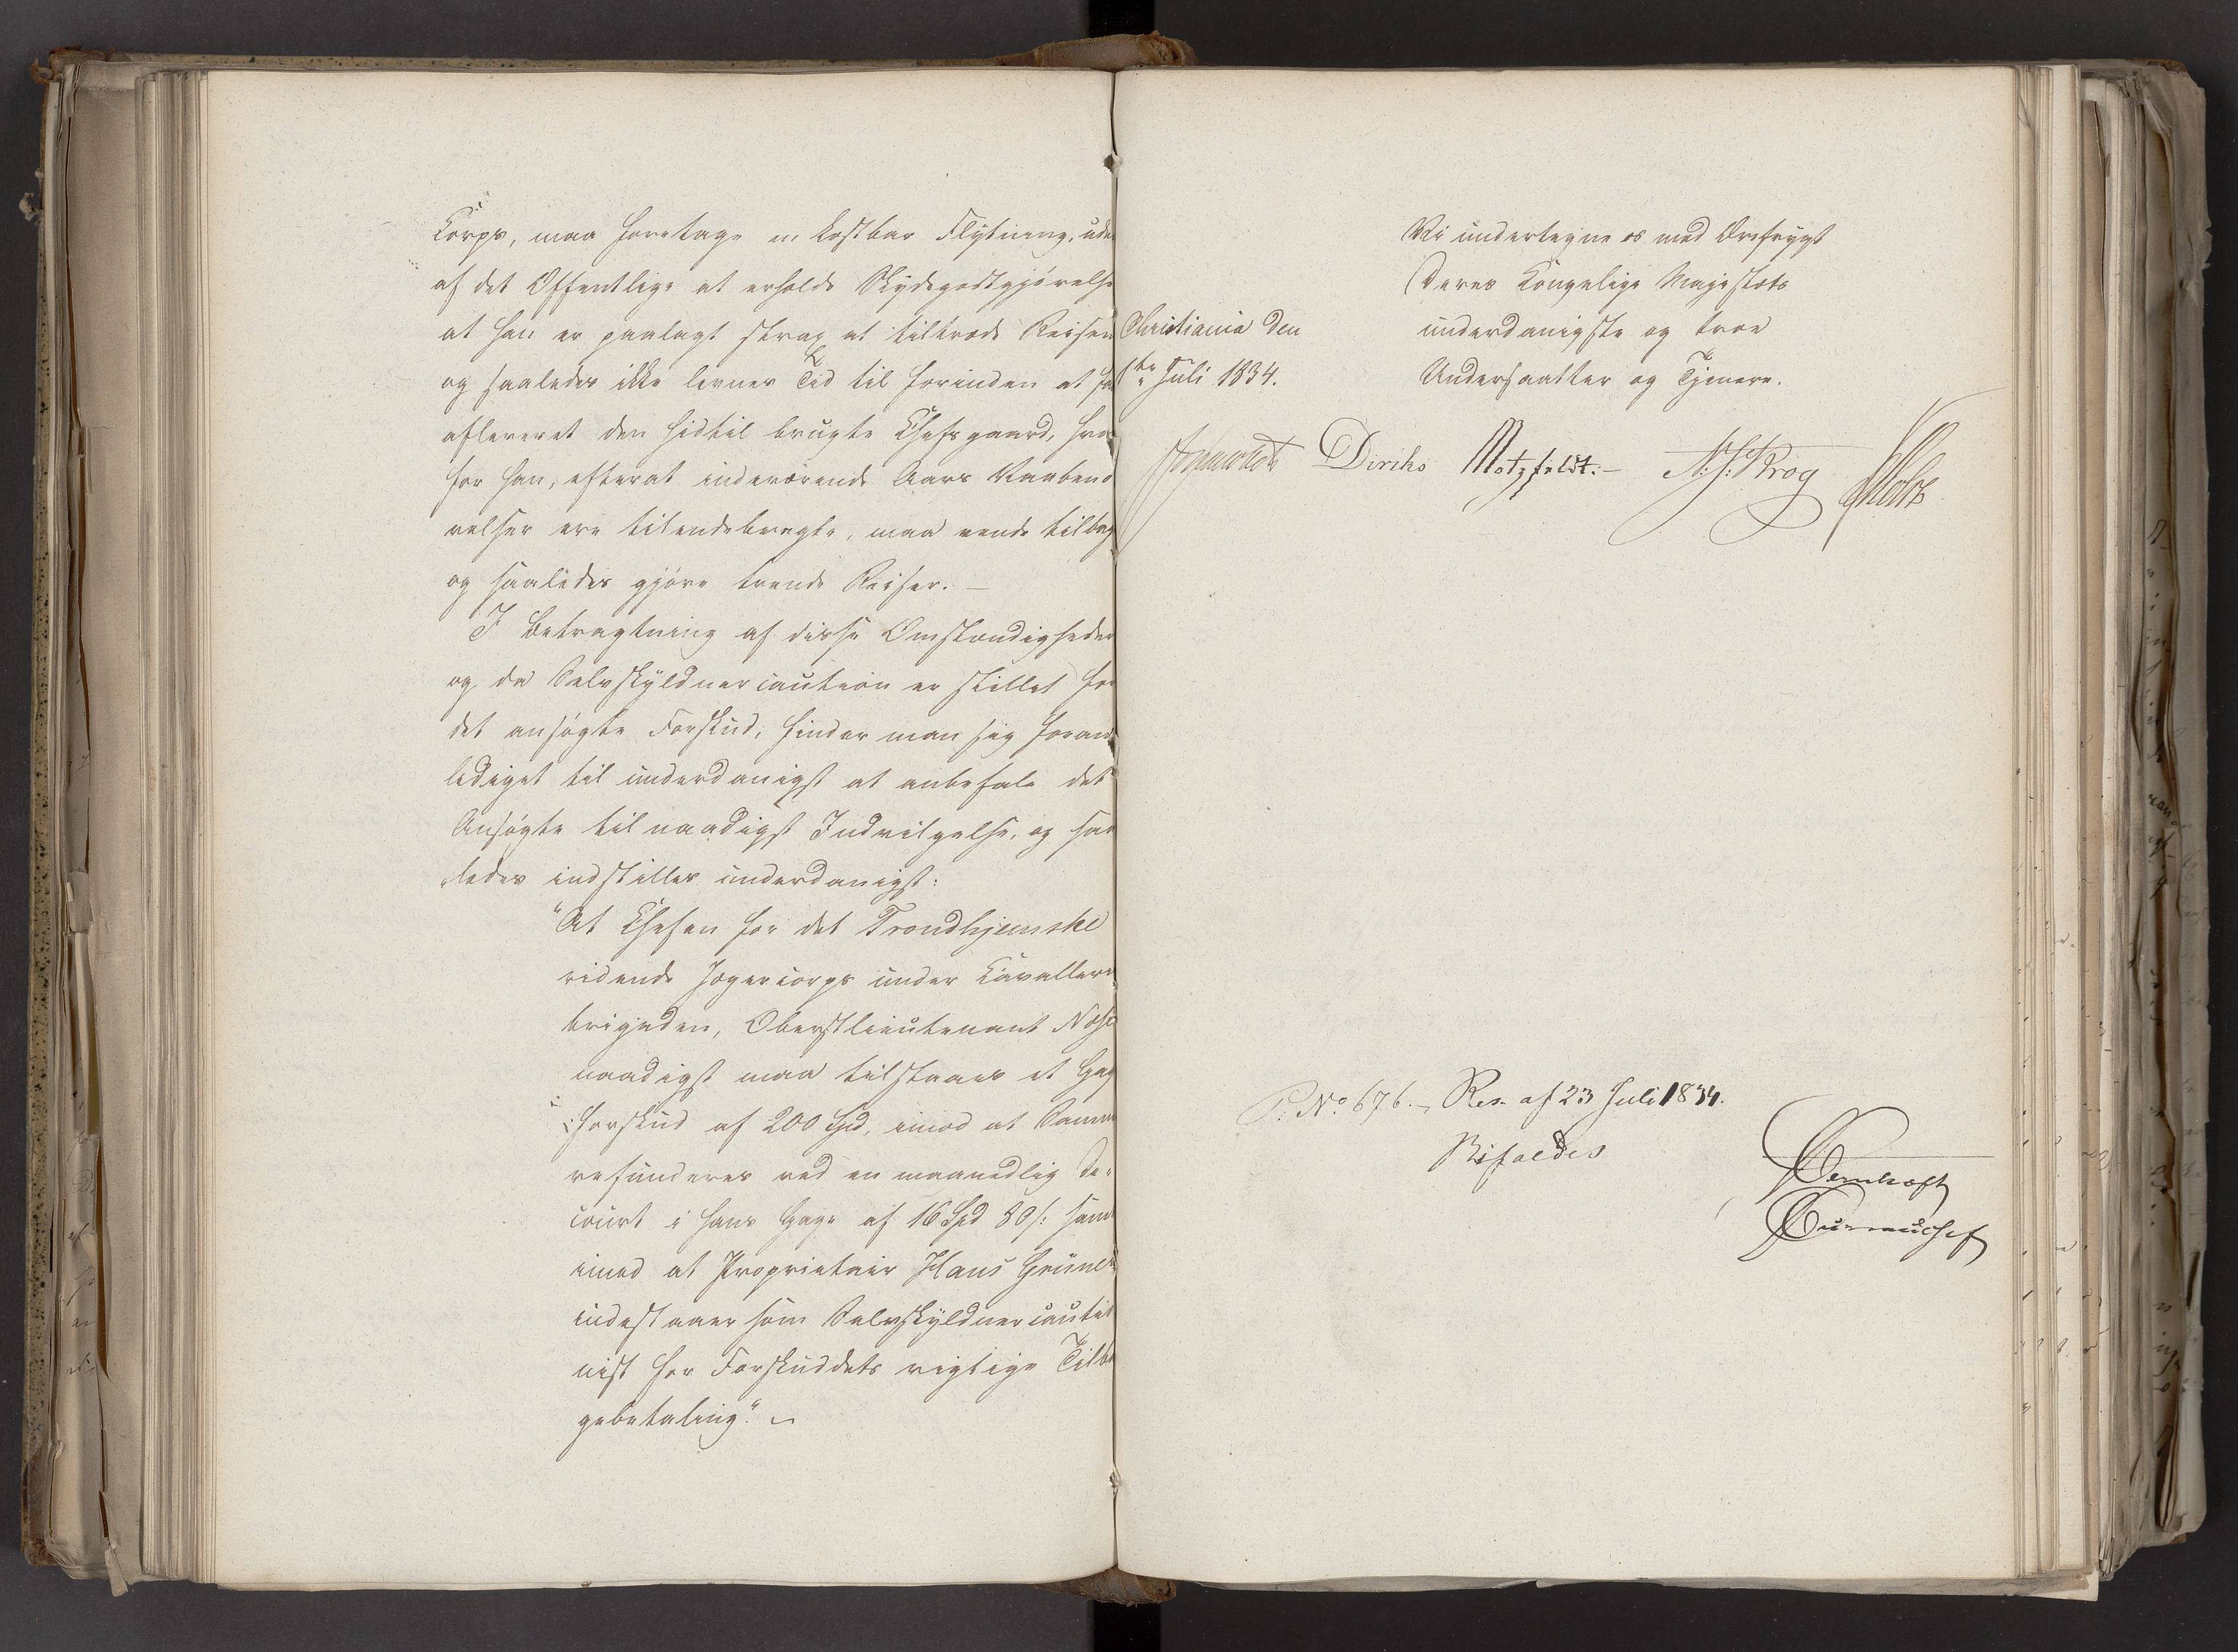 Corps, maa foretage en kostbar Flytning, uden
af det Offentlige at erholde Skydsgodtgjørelse
at han er paalagt strax at tiltræde Reisen
og saaledes ikke levnes Tid til forinden at faa
afleveret den hidtil brugte Chefsgaard, hvor
for han, efterat indeværende Aars Vaabenø
velser ere tilendebragte, maa vende tilbage
og saaledes gjøre trende Reiser. —
I Betragtning af disse Omstændigheder
og da Selvskyldnercaution er stillet for
det ansøgte Forskud, finder man sig foran
lediget til underdanigst at anbefale det
Ansøgte til naadigst Indvilgelse, og saa
ledes indstilles underdanigst:
"At Chefen for det Trondhjemske
ridende Jægercorps under Cavalleri
brigaden, Oberstlieutenant
naadigst maa tilstaaes et Gage
forskud af 200 Spd, imod at Samme
refunderes ved en maanedlig De-
court i hans Gage af 16 Spd 80 s: samt
imod at Proprietair Hans Grüner
indestaaer som Selvskyldnercautio
nist for Forskuddets rigtige Tilba
gebetaling." —
Vi undertegne os med Ærefrygt
Deres Kongelige Majestæts
underdanigste og troe
Undersaatter og Tjenere.
Christiania den
Juli 1834.
Diriks Motzfeldt. — N. J. Krog Holst
P. No 676. — Res. af 23 Juli 1834.
Bifaldes